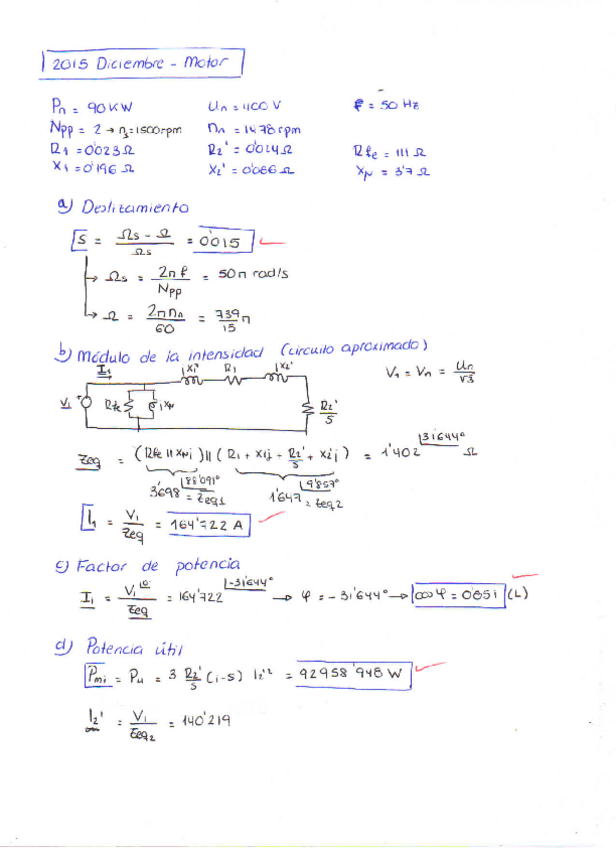 2015 Diciembre - Motor
Pn = 90 KW   Un = 400 V   f = 50 Hz
Npp = 2 → ns = 1500 rpm   nn = 1478 rpm
R1 = 0'023 Ω   R2' = 0'024 Ω   Rfe = 111 Ω
X1 = 0'196 Ω   X2' = 0'086 Ω   Xμ = 3'7 Ω
a) Deslizamiento
S = (Ωs - Ω) / Ωs = 0'015
→ Ωs = 2πf / Npp = 50π rad/s
→ Ω = 2πnn / 60 = 739/15 π
b) Módulo de la intensidad (circuito aproximado)
I1   X1   R1   X2'   V1 = Vn = Un/√3
V1   Rfe   Xμ   R2'/S
Zeq = (Rfe || Xμj) || (R1 + X1j + R2'/S + X2'j) = 1'402 |31'644° Ω
3'698 |88'091° = Zeq1   1'647 |9'857° = Zeq2
I1 = V1/Zeq = 164'722 A
c) Factor de potencia
I1 = V1 |0° / Zeq = 164'722 |-31'644° → φ = -31'644° → cos φ = 0'851 (L)
d) Potencia útil
Pmi = Pu = 3 R2'/S (1-S) I2'² = 92958'948 W
I2' = V1/Zeq2 = 140'219